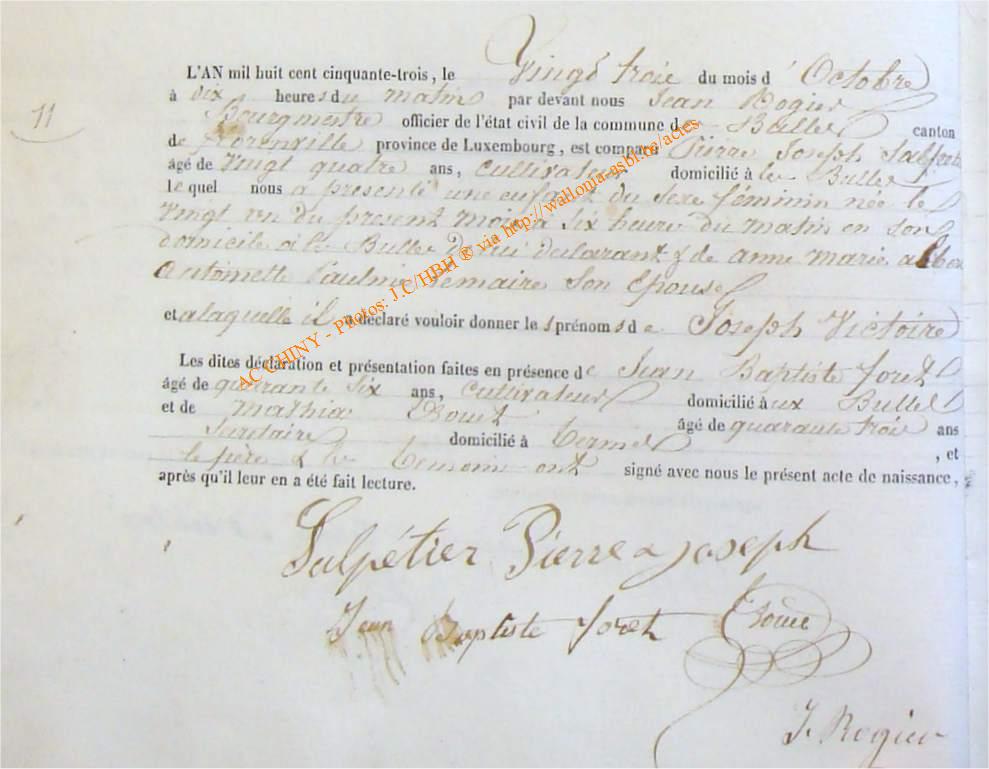 11
L'AN mil huit cent cinquante-trois, le Vingt trois du mois d'Octobre
à dix heures du matin par devant nous Jean Rogier
Bourgmestre officier de l'état civil de la commune de Bulles canton
de Florenville province de Luxembourg, est comparu Pierre Joseph
âgé de Vingt quatre ans, Cultivateur domicilié à les Bulles
lequel nous a présenté une enfant du sexe féminin née le
Vingt un du present mois à Six heure du matin en son
domicile à les Bulles de lui declarant & de anne marie
antoinette Lemaire Son Epouse
et a laquelle il a déclaré vouloir donner les prénoms de Joseph Victoire
Les dites déclaration et présentation faites en présence de Jean Baptiste Foret
âgé de quarante Six ans, Cultivateur domicilié aux Bulles
et de Mathia âgé de quarante trois ans
Secretaire domicilié à Termes , et
le père & les temoins ont signé avec nous le présent acte de naissance,
après qu'il leur en a été fait lecture.
Salpétier Pierre Joseph
Jean Baptiste Foret
J. Rogier
AC CHINY - Photos: J.C/HBH ® via http://wallonia-asbl.be/actes